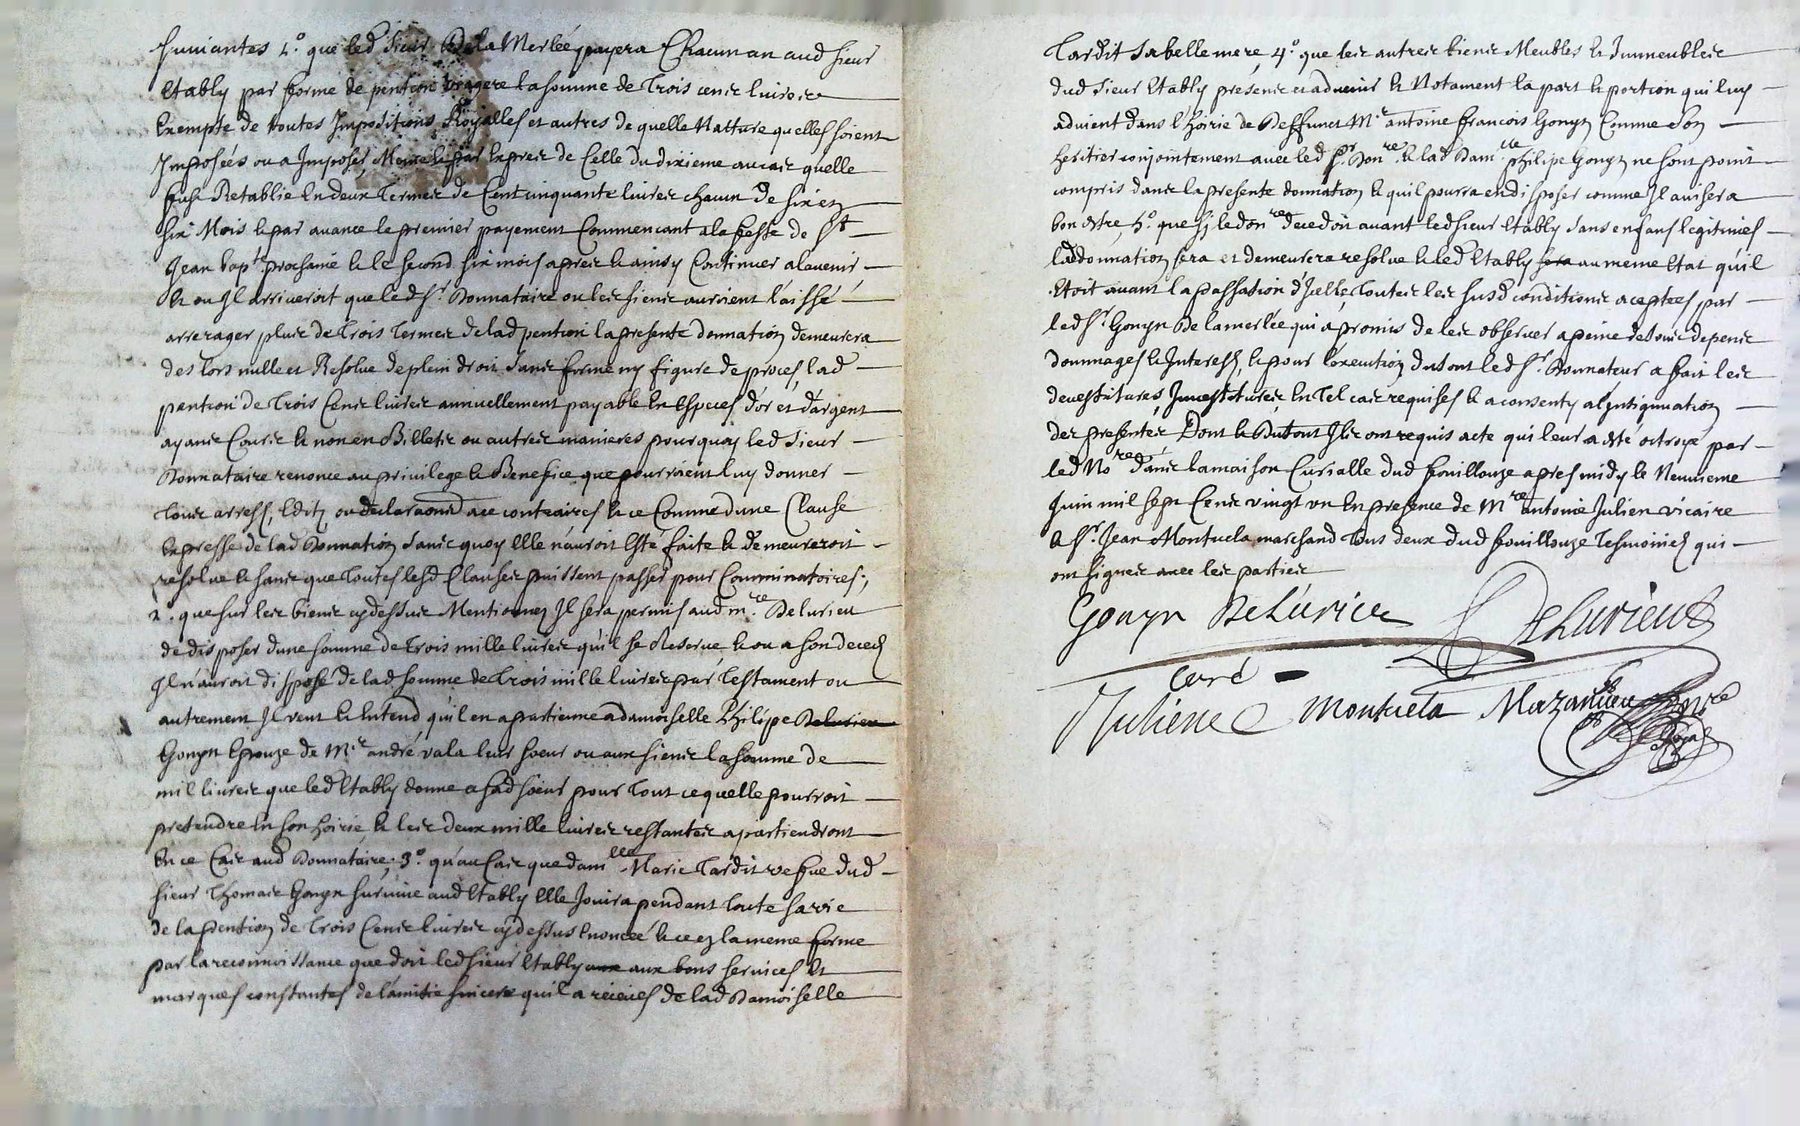 suivantes 1.° que led sieur De la Merlée payera Chacun an aud sieur
Etably par forme de pention viagere la somme de Trois cents livres
Exempte de toutes Impositions Royalles et autres de quelle Natture quelles soient
Imposées ou a Imposer, Mesme par Exprez de Celle du dixieme au cas quelle
fust Retablie En deux Termes de Cent cinquante livres chacun de six en
six Mois et par avance le premier payement Commencant a la feste de St
Jean bapte prochaine et le second six mois apres et ainsy Continuer a lavenir
Et ou Il arriveroit que led Sr. Donnataire ou les siens auroient laissé
arrerager plus de Trois Termes de lad pention la presente donnation demeurera
des lors nulle et Resolue de plein droit sans forme ny figure de proces, lad
pention de Trois Cents livres annuellement payable En Especes d'or et d'argent
ayant Cours et non en Billets ou autres manieres pourquoy led sieur
Donnataire renonce au privilege et Benefice que pourroient luy donner
Tous arrests, Edits ou declaraons a ce contraires et ce Comme d'une Clause
Expresse de lad Donnation sans quoy Elle n'auroit Esté faite et demeureroit
resolue et sans que Toutes lesd Clauses puissent passer pour Comminatoires;
2.° que sur les biens cy dessus Mentionnez Il sera permis aud mre. Delurieu
de disposer d'une somme de trois mille livres qu'il se Reserve et ou a son decez
Il n'auroit disposé de lad somme de Trois mille livres par Testament ou
autrement Il veut et Entend qu'il en apartienne a damoiselle Philipe Delurieu
Gonyn Epouze de Mre. andré vala leur soeur ou aux siens la somme de
mil livres que led Etably donne a sad soeur pour Tout ce quelle pourroit
pretendre En son hoirie et les deux mille livres restantes apartiendront
En ce Cas aud Donnataire, 3.° qu'au Cas que damlle. Marie Tardit vefve dud
sieur Thomas Gonyn survive aud Etably Elle Jouira pendant Toute sa vie
de la pention de Trois Cents livres cy dessus Enoncée et ce en la meme forme
par la reconnoissance que doit led sieur Etably aux bons services Et
marques constantes de lamitié sincere qu'il a receues de lad Damoiselle
Tardit sa belle mere, 4.° que les autres biens Meubles et Immeubles
dud sieur Etably presents et advenir et Notament la part et portion qui luy
advient dans l'hoirie de Deffunct Mre antoine francois Gonyn Comme son
heritier conjointement avec led Sr Donre. et lad Damlle philipe Gonyn ne sont point
compris dans la presente donnation et quil pourra en disposer comme Il avisera
bon estre, 5.° que si led donre decedoit avant led sieur Etably sans enfans legitimes
lad donnation sera et demeurera resolue et led Etably au meme Etat qu'il
Etoit avant la passation d'Icelle, Toutes les susd conditions aceptées par
led Sr Gonyn De la merlée qui a promis de les observer a peine de tous depens
dommages et Interests, et pour l'execution du tout led Sr. Donnateur a fait les
devestitures, Investitures, En Tel cas requises et a consenty a l'intiguation
des presentes Dont et Du tout Ils ont requis acte qui leur a esté octroyé par
led Nore dans la maison Curialle dud fouillouze apres midy le Neuvieme
Juin mil sept Cents vingt un En presence de Mre antoine Julien vicaire
et Sr. Jean Montucla marchand Tous deux dud fouillouze Tesmoins qui
ont signez avec les parties
Gonyn De Lurieu
DeLurieu
Curé
Juliene
Montucla
Mazanieu
Nre
Royal